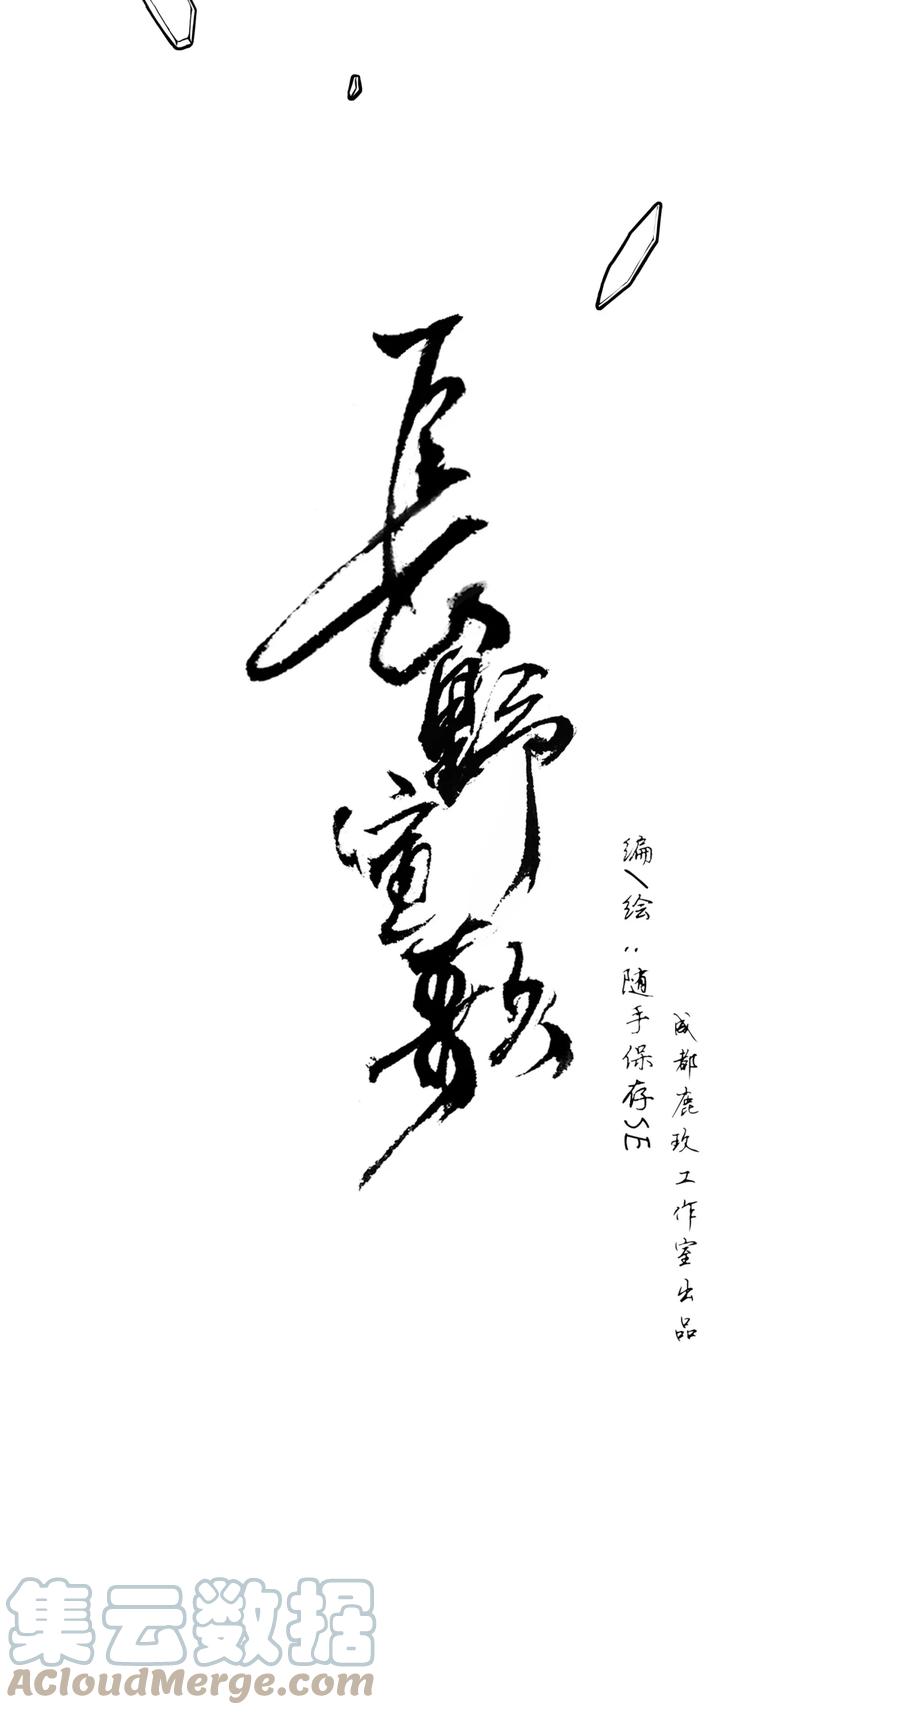 長野宣敷
编/绘:随手保存SE
成都鹿玖工作室出品
集云数据
ACloudMerge.com